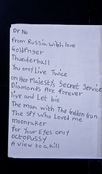 Dr No
From Russia with love
Goldfinger
Thunderball
You only Live Twice
on Her Majesty's Secret Service
Diamonds Are forever
Live and Let Die
The man with The Golden Gun
The Spy who Loved me
Moonraker
For Your Eyes only
octopussy
A view to a kill